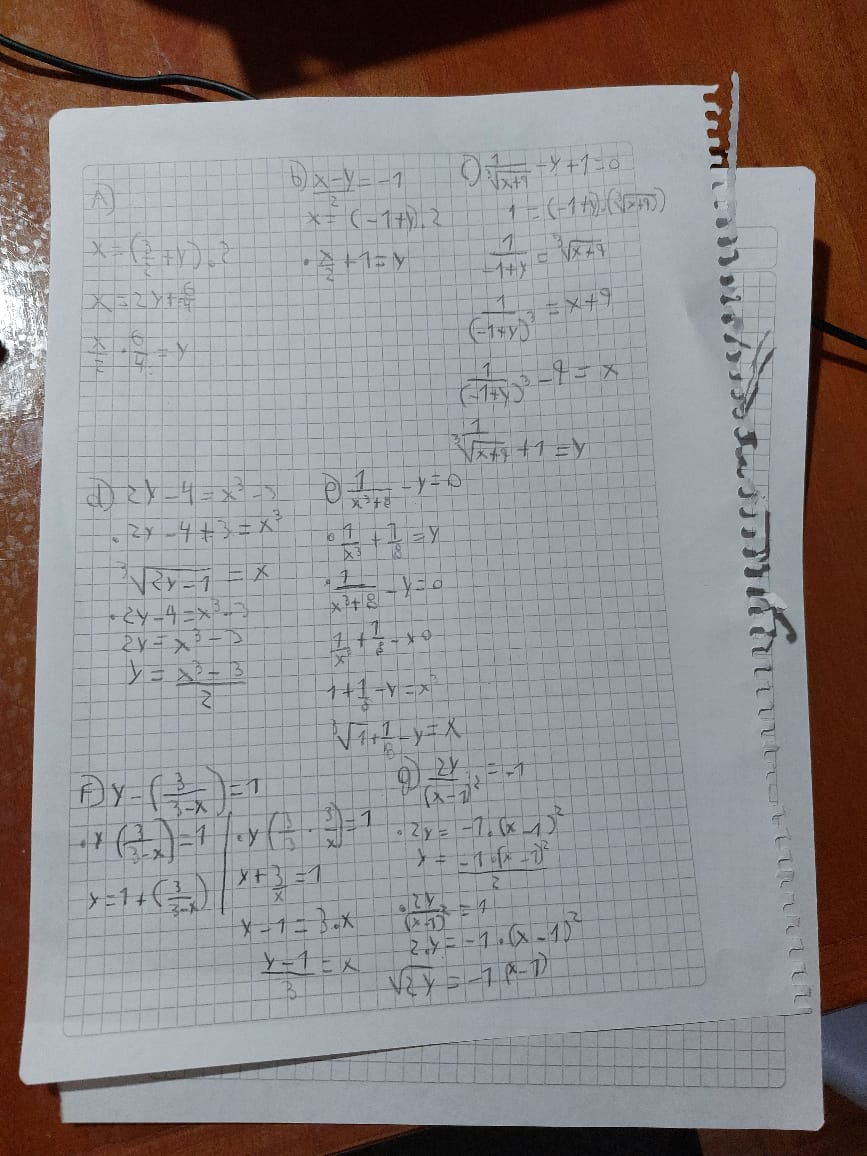 A)
x = (3/2 + y) . 2
x = 2y + 6/4
x/2 . 6/4 = y
b) (x-y)/2 = -1
x = (-1+y) . 2
• x/2 + 1 = y
c) 1/∛(x+9) - y + 1 = 0
1 = (-1+y) . (∛(x+9))
1/(-1+y) = ∛(x+9)
1/(-1+y)³ = x+9
1/(-1+y)³ - 9 = x
1/∛(x+9) + 1 = y
d) 2y - 4 = x³ - 3
• 2y - 4 + 3 = x³
∛(2y-1) = x
• 2y - 4 = x³ - 3
2y = x³ - 3
y = (x³ - 3)/2
e) 1/(x³+8) - y = 0
• 1/x³ + 1/8 = y
• 1/(x³+8) - y = 0
1/x³ + 1/8 - x0
1 + 1/8 - y = x³
∛1 + 1/8 - y = x
F) y - (3/(3-x)) = 1
• y (3/(3-x)) = 1
y = 1 + (3/(3-x))
• y (3/3 . 3/x) = 1
x + 3/x = 1
y - 1 = 3.x
(y-1)/3 = x
g) 2y/(x-1)² = -1
• 2y = -1 . (x-1)²
y = -1 . (x-1)²/2
• 2y/(x-1)² = 1
2.y = -1 . (x-1)²
√2y = -1 (x-1)